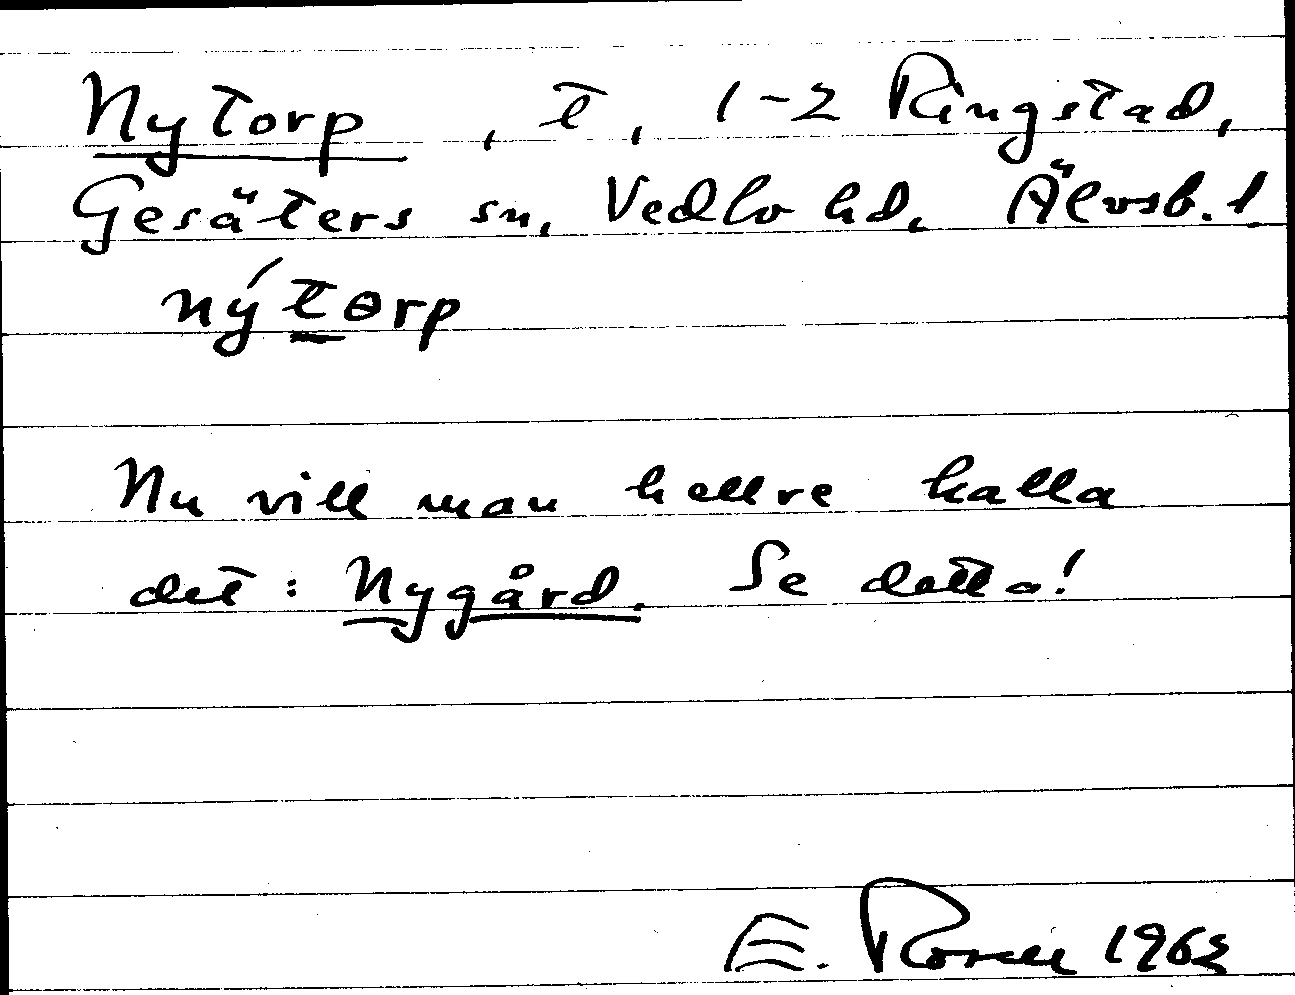 Nytorp, t, 1-2 Ringstad,
Gesäters sn, Vedbo hd, Älvsb. l.
nýtɵrp
Nu vill man hellre kalla
det: Nygård. Se detta!
E. Rosell 1963